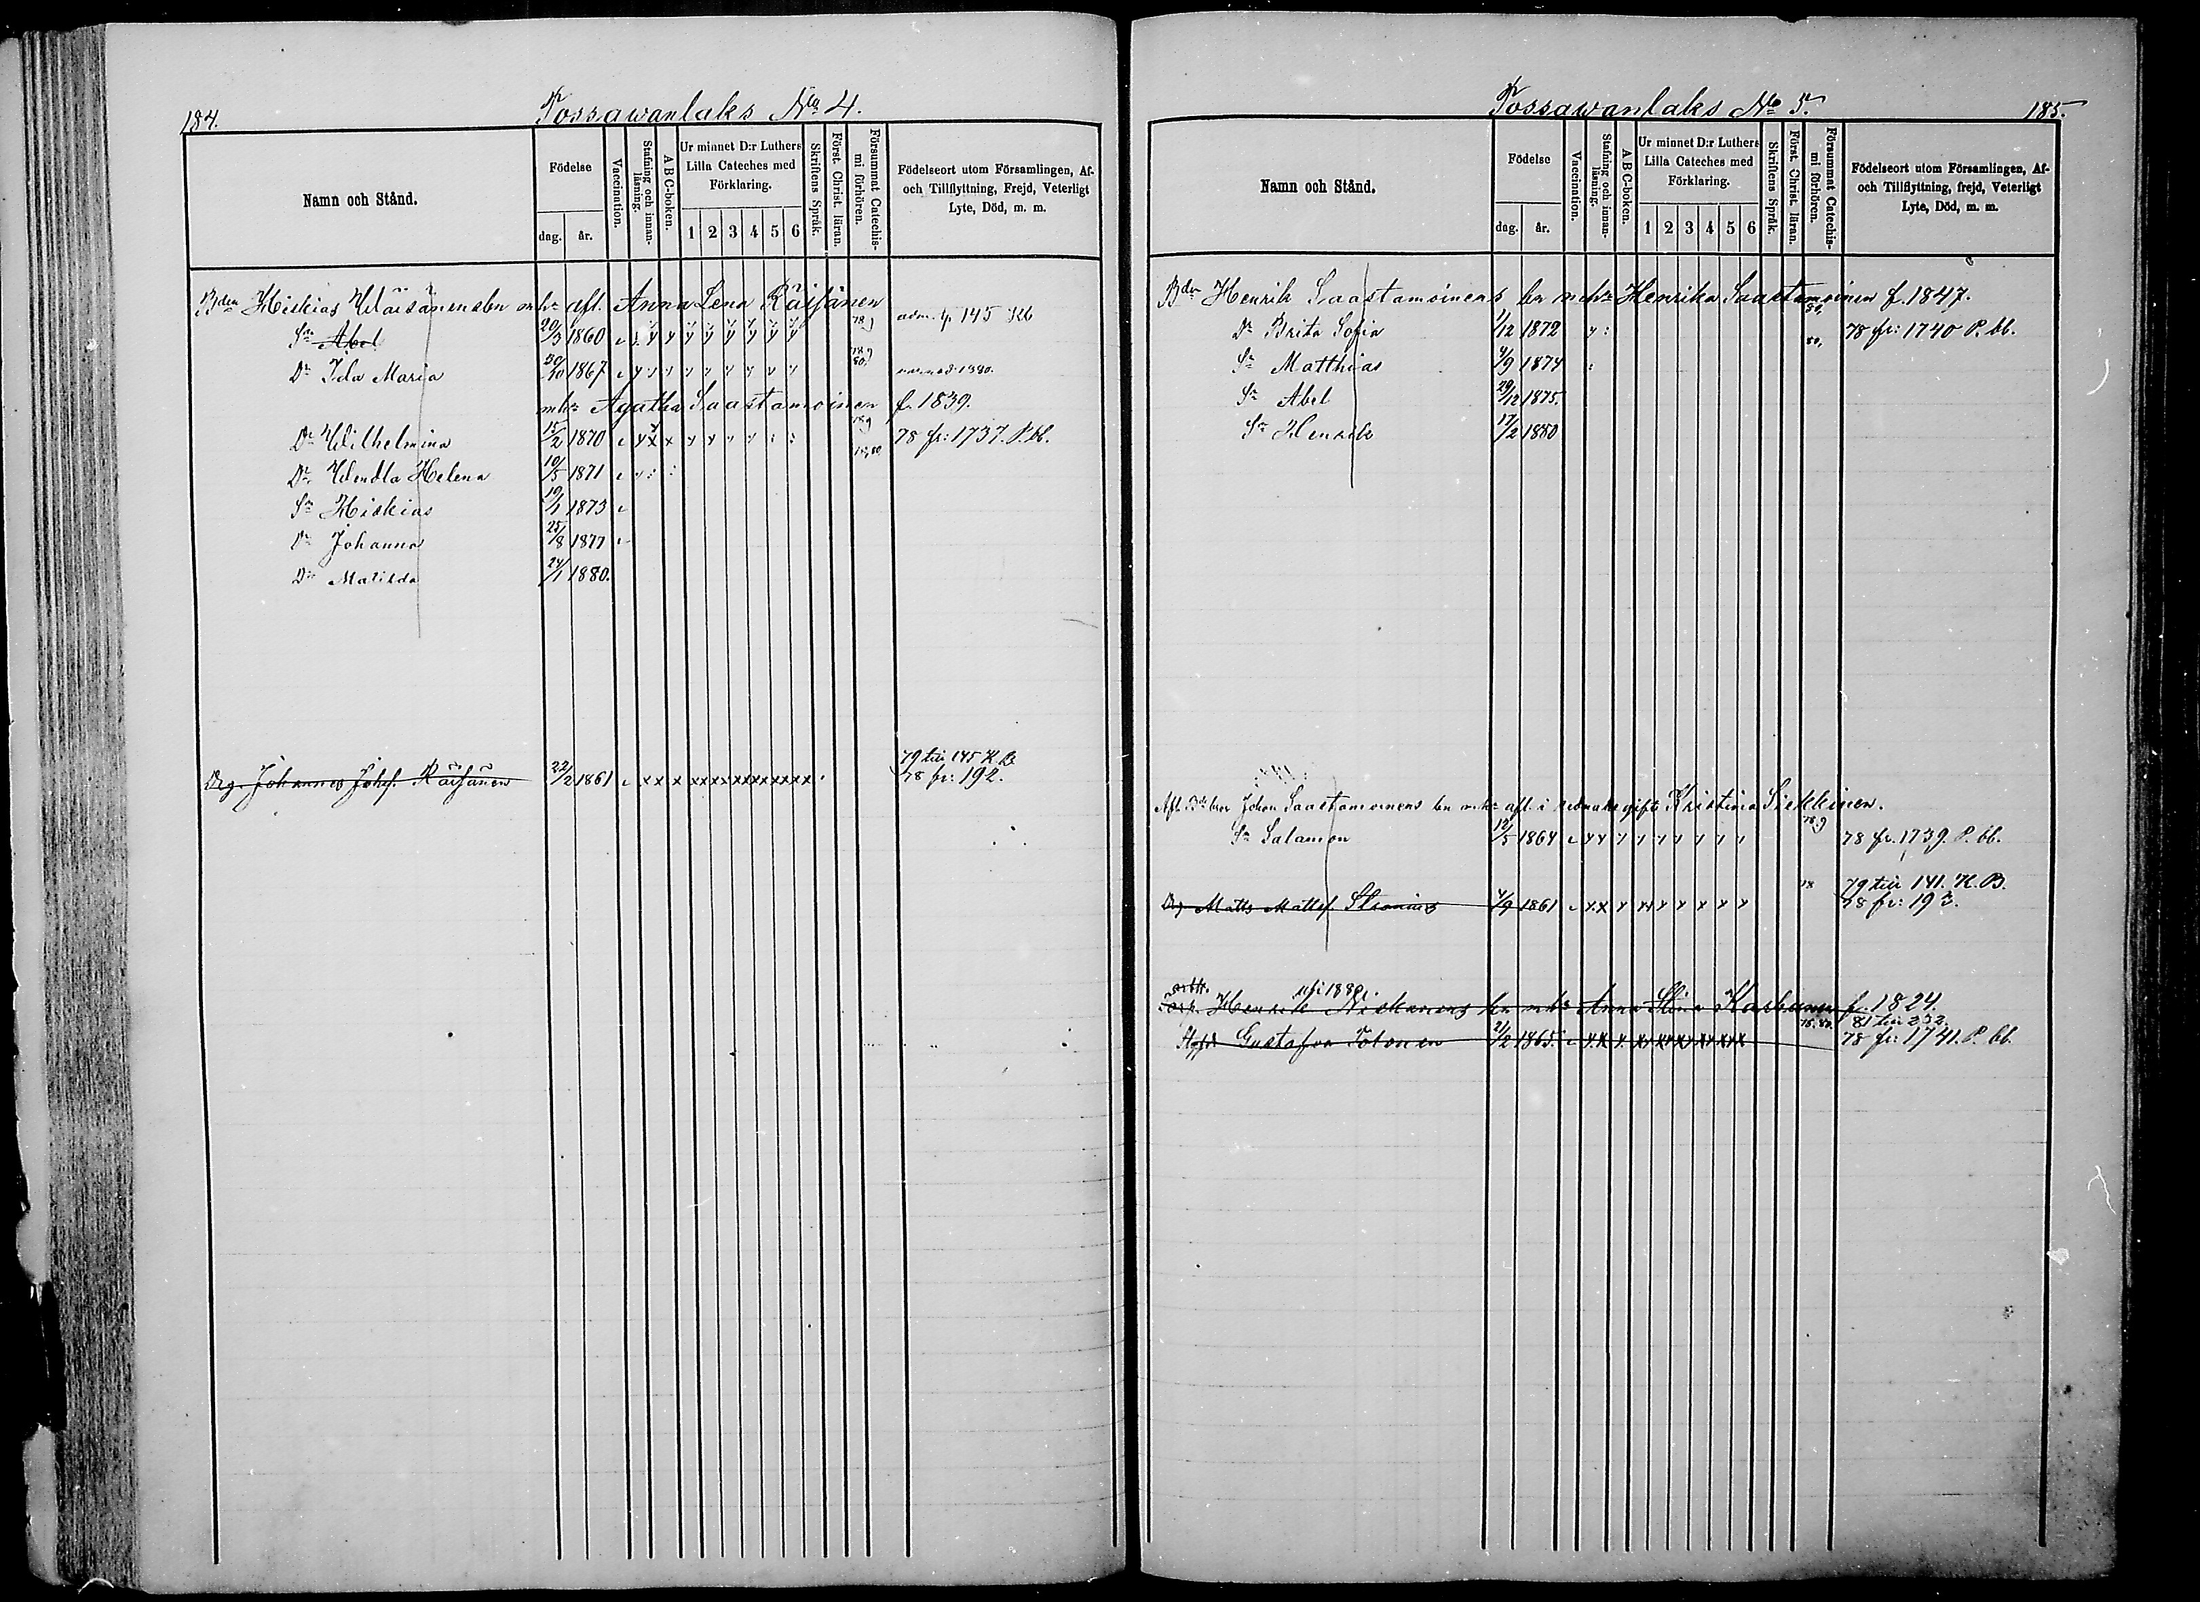 184.
Tossawanlaks No 4.
Namn och Stånd.
Födelse
dag. år.
Vaccination.
Stafning och innanläsning.
A B C-boken.
Ur minnet D:r Luthers Lilla Cateches med Förklaring.
1 2 3 4 5 6
Skriftens Språk.
Först. Christ. läran.
Försummat Catechismi förhören.
Födelseort utom Församlingen, Af- och Tillflyttning, Frejd, Veterligt Lyte, Död, m. m.
Bden Hiskias Wäisänens bn mhu afl. Anna Lena Räisänen
Sn Abel 20/3 1860 78,9 adm. p. 145 Kb
Dr Ida Maria 1867 78,9 80.
mhu Agatha Saastamoinen f. 1839.
Dr Wilhelmina 15/2 1870 78 fr: 1737. P. bb.
Dr Wendla Helena 10/5 1871
Sn Hiskias 19/1 1873
Dr Johanna 25/8 1877
Dr Matilda 24/1 1880.
79 till 145 K B
Drg. Johannes Johs. Räisänen 22/2 1861 78 fr: 192.
Tossawanlaks No 5.
185.
Namn och Stånd.
Födelse
dag. år.
Vaccination.
Stafning och innanläsning.
A B C-boken.
Ur minnet D:r Luthers Lilla Cateches med Förklaring.
1 2 3 4 5 6
Skriftens Språk.
Först. Christ. läran.
Försummat Catechismi förhören.
Födelseort utom Församlingen, Af- och Tillflyttning, frejd, Veterligt Lyte, Död, m. m.
Bden Henrik Saastamoinens bn mhu Henrika Saastamoinen f. 1847.
Dr Brita Sofia 1/12 1872 80, 78 fr: 1740 P. bb.
Sn Matthias 4/9 1874 80,
Sn Abel 29/12 1875.
Sn Henrik 17/2 1880
Afl. Bd bror Johan Saastamoinens bn mhu afl. i gift Kristina Sirkkinen.
Sn Salamon 12/5 1864 78,9 78 fr. 1739. P. bb.
79 till 141. K. B.
Drg Matts Mattss. 4/9 1861 78 78 fr: 193.
ufl 1880.
Henrik Niskanens bn mhu Anna Stina Karhunen f. 1824.
81 till 232.
Gustafva Tolonen 21/2 1865. 78.80. 78 fr: 1741. P. bb.